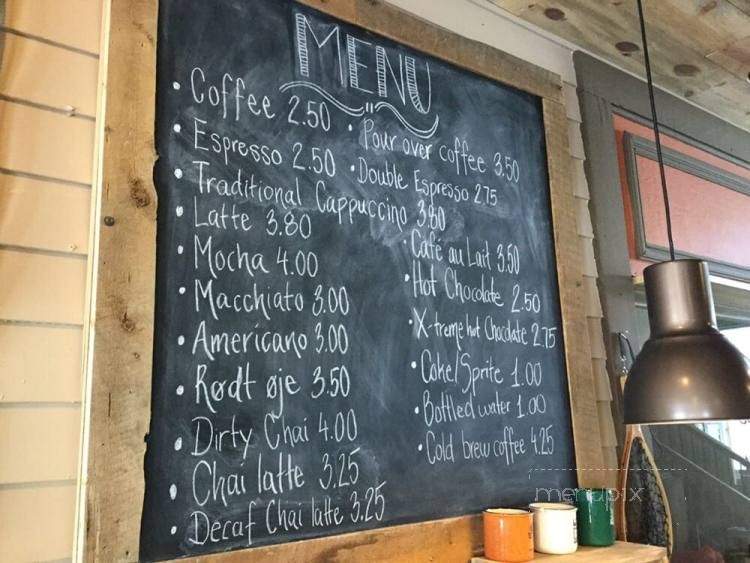 MENU
• Coffee 2.50
• Espresso 2.50
• Traditional Cappuccino 3.80
• Latte 3.80
• Mocha 4.00
• Macchiato 3.00
• Americano 3.00
• Rødt øje 3.50
• Dirty Chai 4.00
• Chai latte 3.25
• Decaf Chai latte 3.25
• Pour over coffee 3.50
• Double Espresso 2.75
• Café au Lait 3.50
• Hot Chocolate 2.50
• X-treme hot Chocolate 2.75
• Coke/Sprite 1.00
• Bottled water 1.00
• Cold brew coffee 4.25
menupix